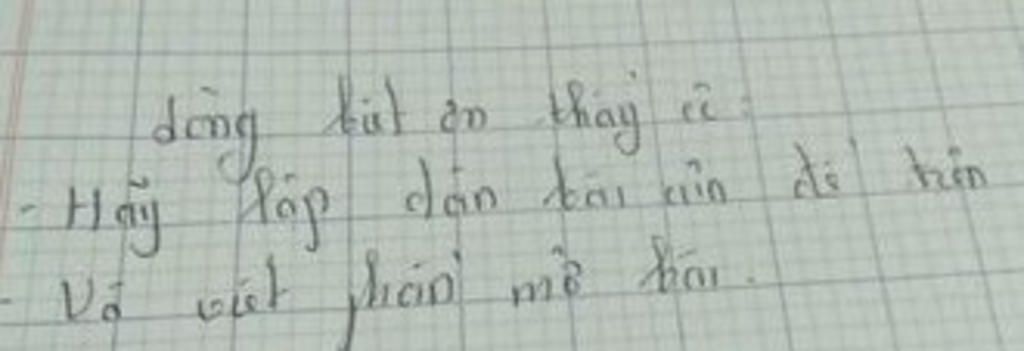 dòng biết ơn thầy cô.
- Hãy lập dàn bài của đề trên
- Và viết phần mở bài.